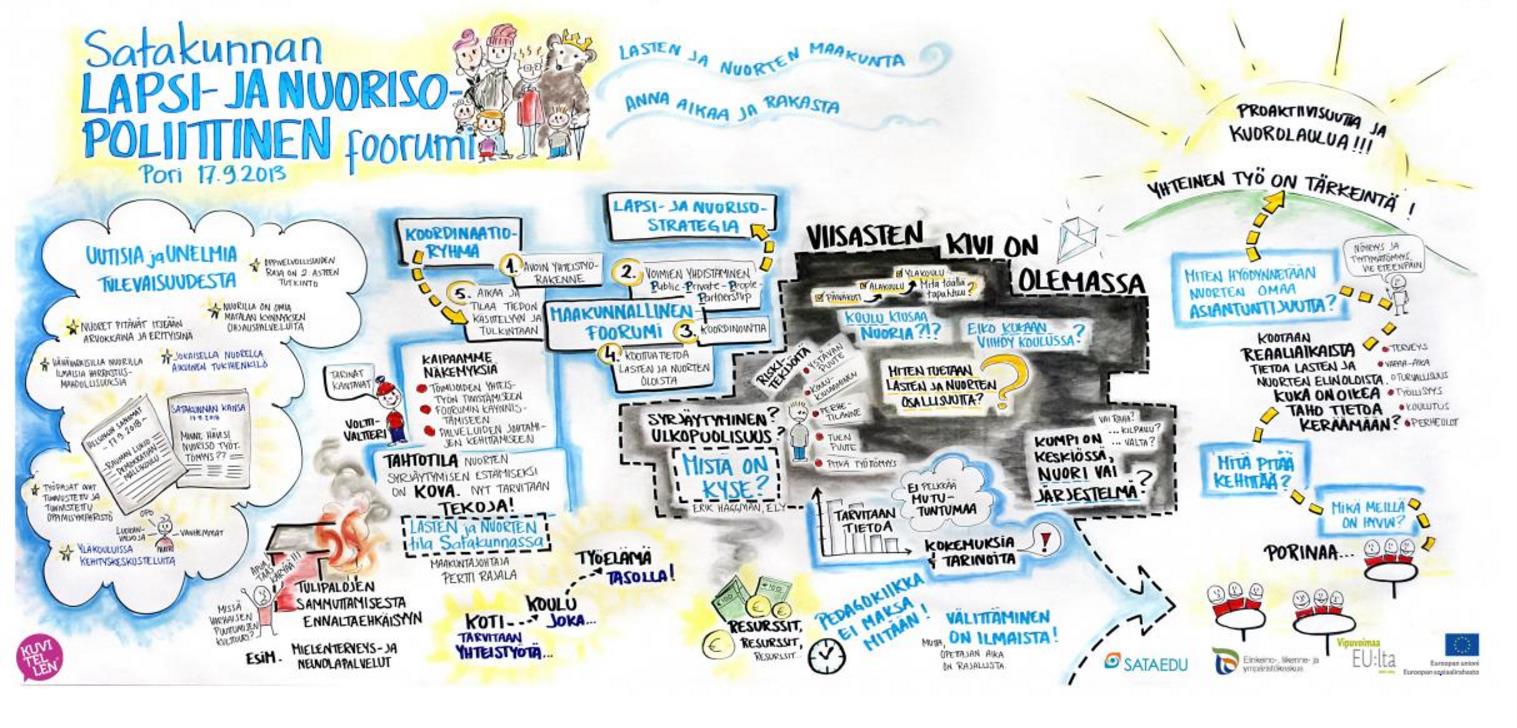 Satakunnan
LAPSI- JA NUORISO-
POLIITTINEN foorumi
Pori 17.9.2013
LASTEN JA NUORTEN MAAKUNTA
ANNA AIKAA JA RAKASTA
UUTISIA ja UNELMIA
TULEVAISUUDESTA
OPPIVELVOLLISUUDEN
RAJA ON 2. ASTEEN
TUTKINTO
NUORILLA ON OMIA
MATALAN KYNNYKSEN
OHJAUSPALVELUITA
NUORET PITÄVÄT ITSEÄÄN
ARVOKKAINA JA ERITYISINÄ
VÄHÄVARAISILLA NUORILLA
ILMAISIA HARRASTUS-
MAHDOLLISUUKSIA
JOKAISELLA NUORELLA
AIKUINEN TUKIHENKILÖ
HELSINGIN SANOMAT
- 17.9.2018 -
RAUMAN LUKIO
DEMOKRATIAN
MALLIKOULU
SATAKUNNAN KANSA
MINNE HÄVISI
NUORISOTYÖT-
TÖMYYS??
TYÖPAJAT OVAT
TUNNUSTETTU JA
TUNNISTETTU
OPPIMISYMPÄRISTÖ
OPO
LUOKAN-
VALVOJA
VANHEMMAT
NUORI
YLÄKOULUISSA
KEHITYSKESKUSTELUITA
KOORDINAATIO-
RYHMÄ
1. AVOIN YHTEISTYÖ-
RAKENNE
LAPSI- JA NUORISO-
STRATEGIA
2. VOIMIEN YHDISTÄMINEN
Public-Private-People-
Partnership
5. AIKAA JA
TILAA TIEDON
KÄSITTELYYN JA
TULKINTAAN
MAAKUNNALLINEN
FOORUMI
3. KOORDINOINTIA
4. KOOTTUA TIETOA
LASTEN JA NUORTEN
OLOISTA
TARINAT
KANTAVAT
VOLTTI-
VALTTERI
KAIPAAMME
NÄKEMYKSIÄ
TOIMIJOIDEN YHTEIS-
TYÖN TIIVISTÄMISEEN
FOORUMIN KÄYNNIS-
TÄMISEEN
PALVELUIDEN JOHTAMI-
SEN KEHITTÄMISEEN
TAHTOTILA NUORTEN
SYRJÄYTYMISEN ESTÄMISEKSI
ON KOVA. NYT TARVITAAN
TEKOJA!
LASTEN ja NUORTEN
tila Satakunnassa
MAAKUNTAJOHTAJA
PERTTI RAJALA
APUA!
TÄÄLLÄ
KÄRYÄÄ!!!
MISSÄ
VARHAISEN
PUUTTUMISEN
KULTTUURI?
TULIPALOJEN
SAMMUTTAMISESTA
ENNALTAEHKÄISYYN
ESIM. MIELENTERVEYS- JA
NEUVOLAPALVELUT
KOTI KOULU TYÖELÄMÄ
JOKA... TASOLLA!
TARVITAAN
YHTEISTYÖTÄ...
VIISASTEN KIVI ON
OLEMASSA
PÄIVÄKOTI ALAKOULU YLÄKOULU
Mitä täällä
tapahtuu?
KOULU KIUSAA
NUORIA?!?
EIKÖ KUKAAN
VIIHDY KOULUSSA?
MITEN TUETAAN
LASTEN JA NUORTEN
OSALLISUUTTA?
RISKI-
TEKIJÖITÄ
YSTÄVÄN
PUUTE
KOULU-
KIUSAAMINEN
PERHE-
TILANNE
TUEN
PUUTE
PITKÄ TYÖTTÖMYYS
SYRJÄYTYMINEN?
ULKOPUOLISUUS?
MISTÄ ON
KYSE?
ERIK HÄGGMAN, ELY
VAI RAHA?
...KILPAILU?
...VALTA?
KUMPI ON
KESKIÖSSÄ,
NUORI VAI
JÄRJESTELMÄ?
TARVITAAN
TIETOA
EI PELKKÄÄ
MUTU-
TUNTUMAA
KOKEMUKSIA
& TARINOITA
!
RESURSSIT,
RESURSSIT,
RESURSSIT...
PEDAGOGIIKKA
EI MAKSA
MITÄÄN!
VÄLITTÄMINEN
ON ILMAISTA!
MUTTA,
OPETTAJAN AIKA
ON RAJALLISTA.
PROAKTIIVISUUTTA JA
KUOROLAULUA!!!
YHTEINEN TYÖ ON TÄRKEINTÄ!
MITEN HYÖDYNNETÄÄN
NUORTEN OMAA
ASIANTUNTIJUUTTA?
NÖYRYYS JA
TYYTYMÄTTÖMYYS
VIE ETEENPÄIN
KOOTAAN
REAALIAIKAISTA
TIETOA LASTEN JA
NUORTEN ELINOLOISTA.
KUKA ON OIKEA
TAHO TIETOA
KERÄÄMÄÄN?
TERVEYS
VAPAA-AIKA
TURVALLISUUS
TYÖLLISYYS
KOULUTUS
PERHEOLOT
MITÄ PITÄÄ
KEHITTÄÄ?
MIKÄ MEILLÄ
ON HYVIN?
PORINAA...
KUVITELLEN
SATAEDU
Elinkeino-, liikenne- ja
ympäristökeskus
Vipuvoimaa
EU:lta
Euroopan unioni
Euroopan sosiaalirahasto